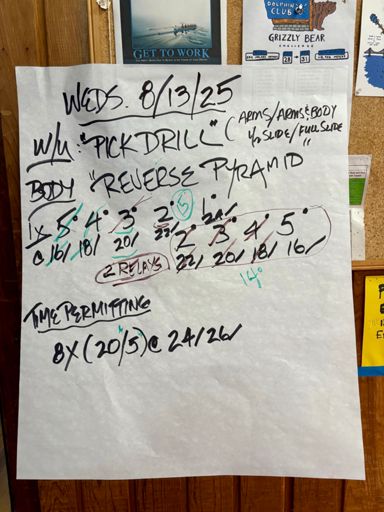 DOLPHIN
CLUB
GRIZZLY BEAR
CHALLENGE
GET TO WORK
WEDS. 8/13/25
W/U: "PICK DRILL" (ARMS/ARMS&BODY
1/2 SLIDE/FULL SLIDE
BODY "REVERSE PYRAMID"
1X 5' 4' 3' 2' 5 1'
@ 16/ 18/ 20/ 22/ 24/
2' 3' 4' 5'
2 RELAYS 22/ 20/ 18/ 16/
14'
TIME PERMITTING
8X (20/5) @ 24/26/